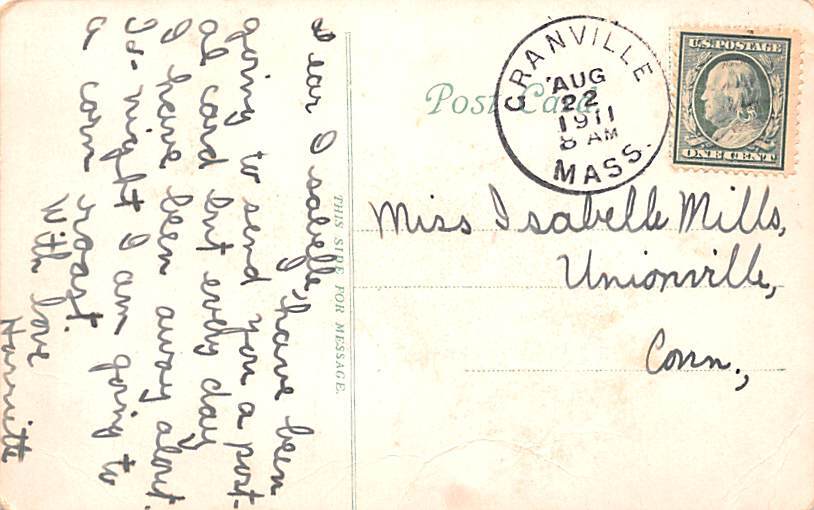 Dear Isabelle,
have been
going to send you a post-
al card but every day
I have been away about.
To-night I am going to
a corn roast.
With love
Harriette
THIS SIDE FOR MESSAGE.
Post Card.
GRANVILLE
AUG
22
1911
8 AM
MASS.
U.S. POSTAGE
ONE CENT
Miss Isabelle Mills,
Unionville,
Conn.,